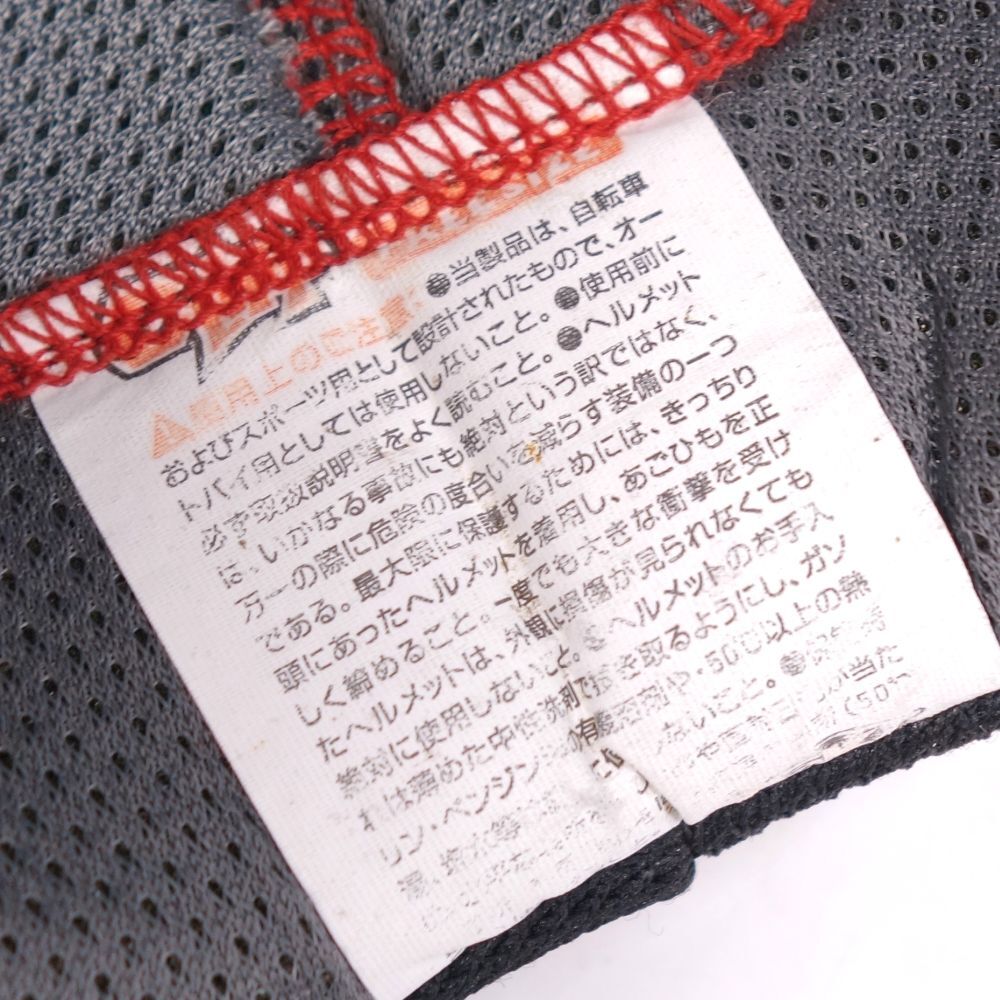 ⚠使用上のご注意
●当製品は、自転車
およびスポーツ用として設計されたもので、オー
トバイ用としては使用しないこと。●使用前に
必ず取扱説明書をよく読むこと。●ヘルメット
は、いかなる事故にも絶対という訳ではなく、
万一の際に危険の度合いを減らす装備の一つ
である。最大限に保護するためには、きっちり
頭にあったヘルメットを着用し、あごひもを正
しく締めること。一度でも大きな衝撃を受け
たヘルメットは、外観に損傷が見られなくても
絶対に使用しないこと。●ヘルメットのお手入
は薄めた中性洗剤で を取るようにし、ガソ
リン・ベンジン の有機溶剤や、50℃以上の熱
湯、 ないこと。●
が当た
(50°